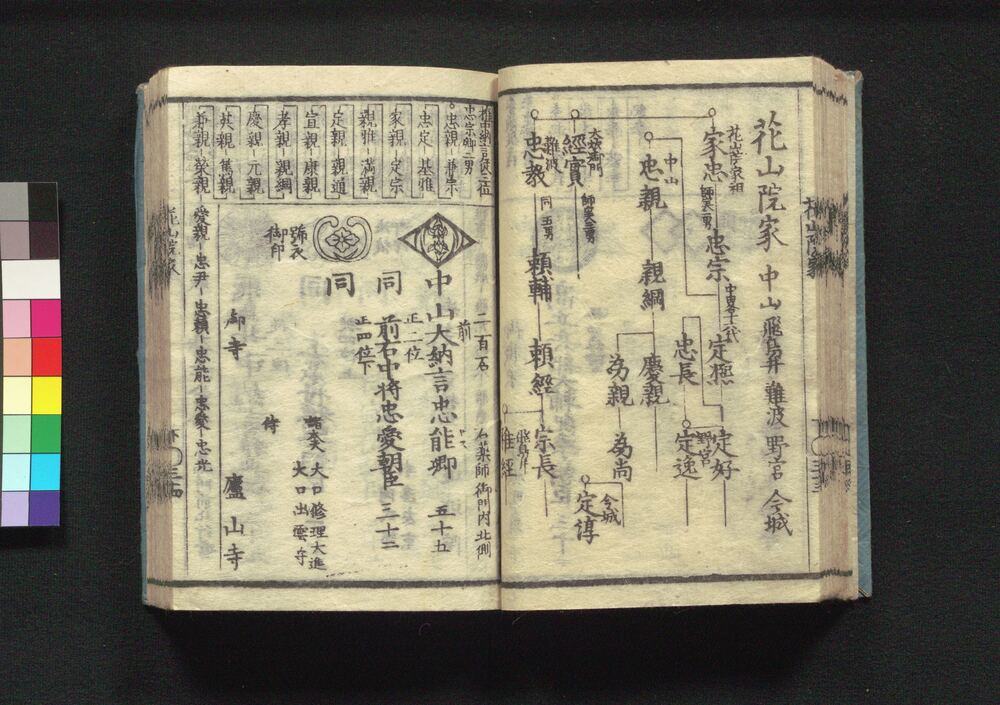 花山院家 中山 飛鳥井 難波 野宮 今城
花山院家祖
家忠 師実二男 忠宗 中畧十二代 定熈 定好
忠長 野宮 定逸
中山
忠親 親綱 慶親
為親 為尚
今城
定淳
大炊御門
経實 師実三男
難波
忠教 同五男 頼輔 頼経 宗長
飛鳥井
雅経
権中納言従三位
忠宗卿二男
忠親 兼宗
忠定 基雅
家親 定宗
親雅 満親
定親 親通
宣親 康親
孝親 親綱
慶親 元親
英親 篤親
兼親 榮親 愛親 忠尹 忠頼 忠能 忠愛 忠光
二百石 石薬師御門内北側
前
中山大納言忠能卿 五十五
正二位
同 前右中将忠愛朝臣 三十二
正四位下
同
諸大夫 大口修理大進
大口出雲守
侍
御印
御寺 廬山寺
花山院家
花山院家